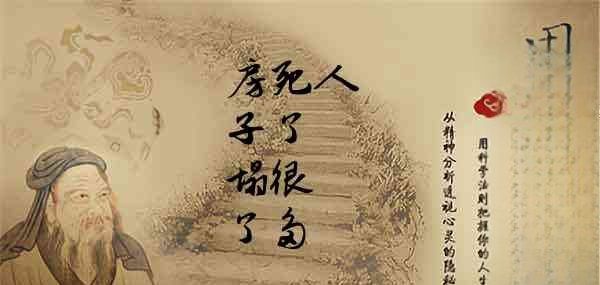 房子塌了
死了很多
人
从精神分析透视心灵的隐秘
用科学法则把握你的人生